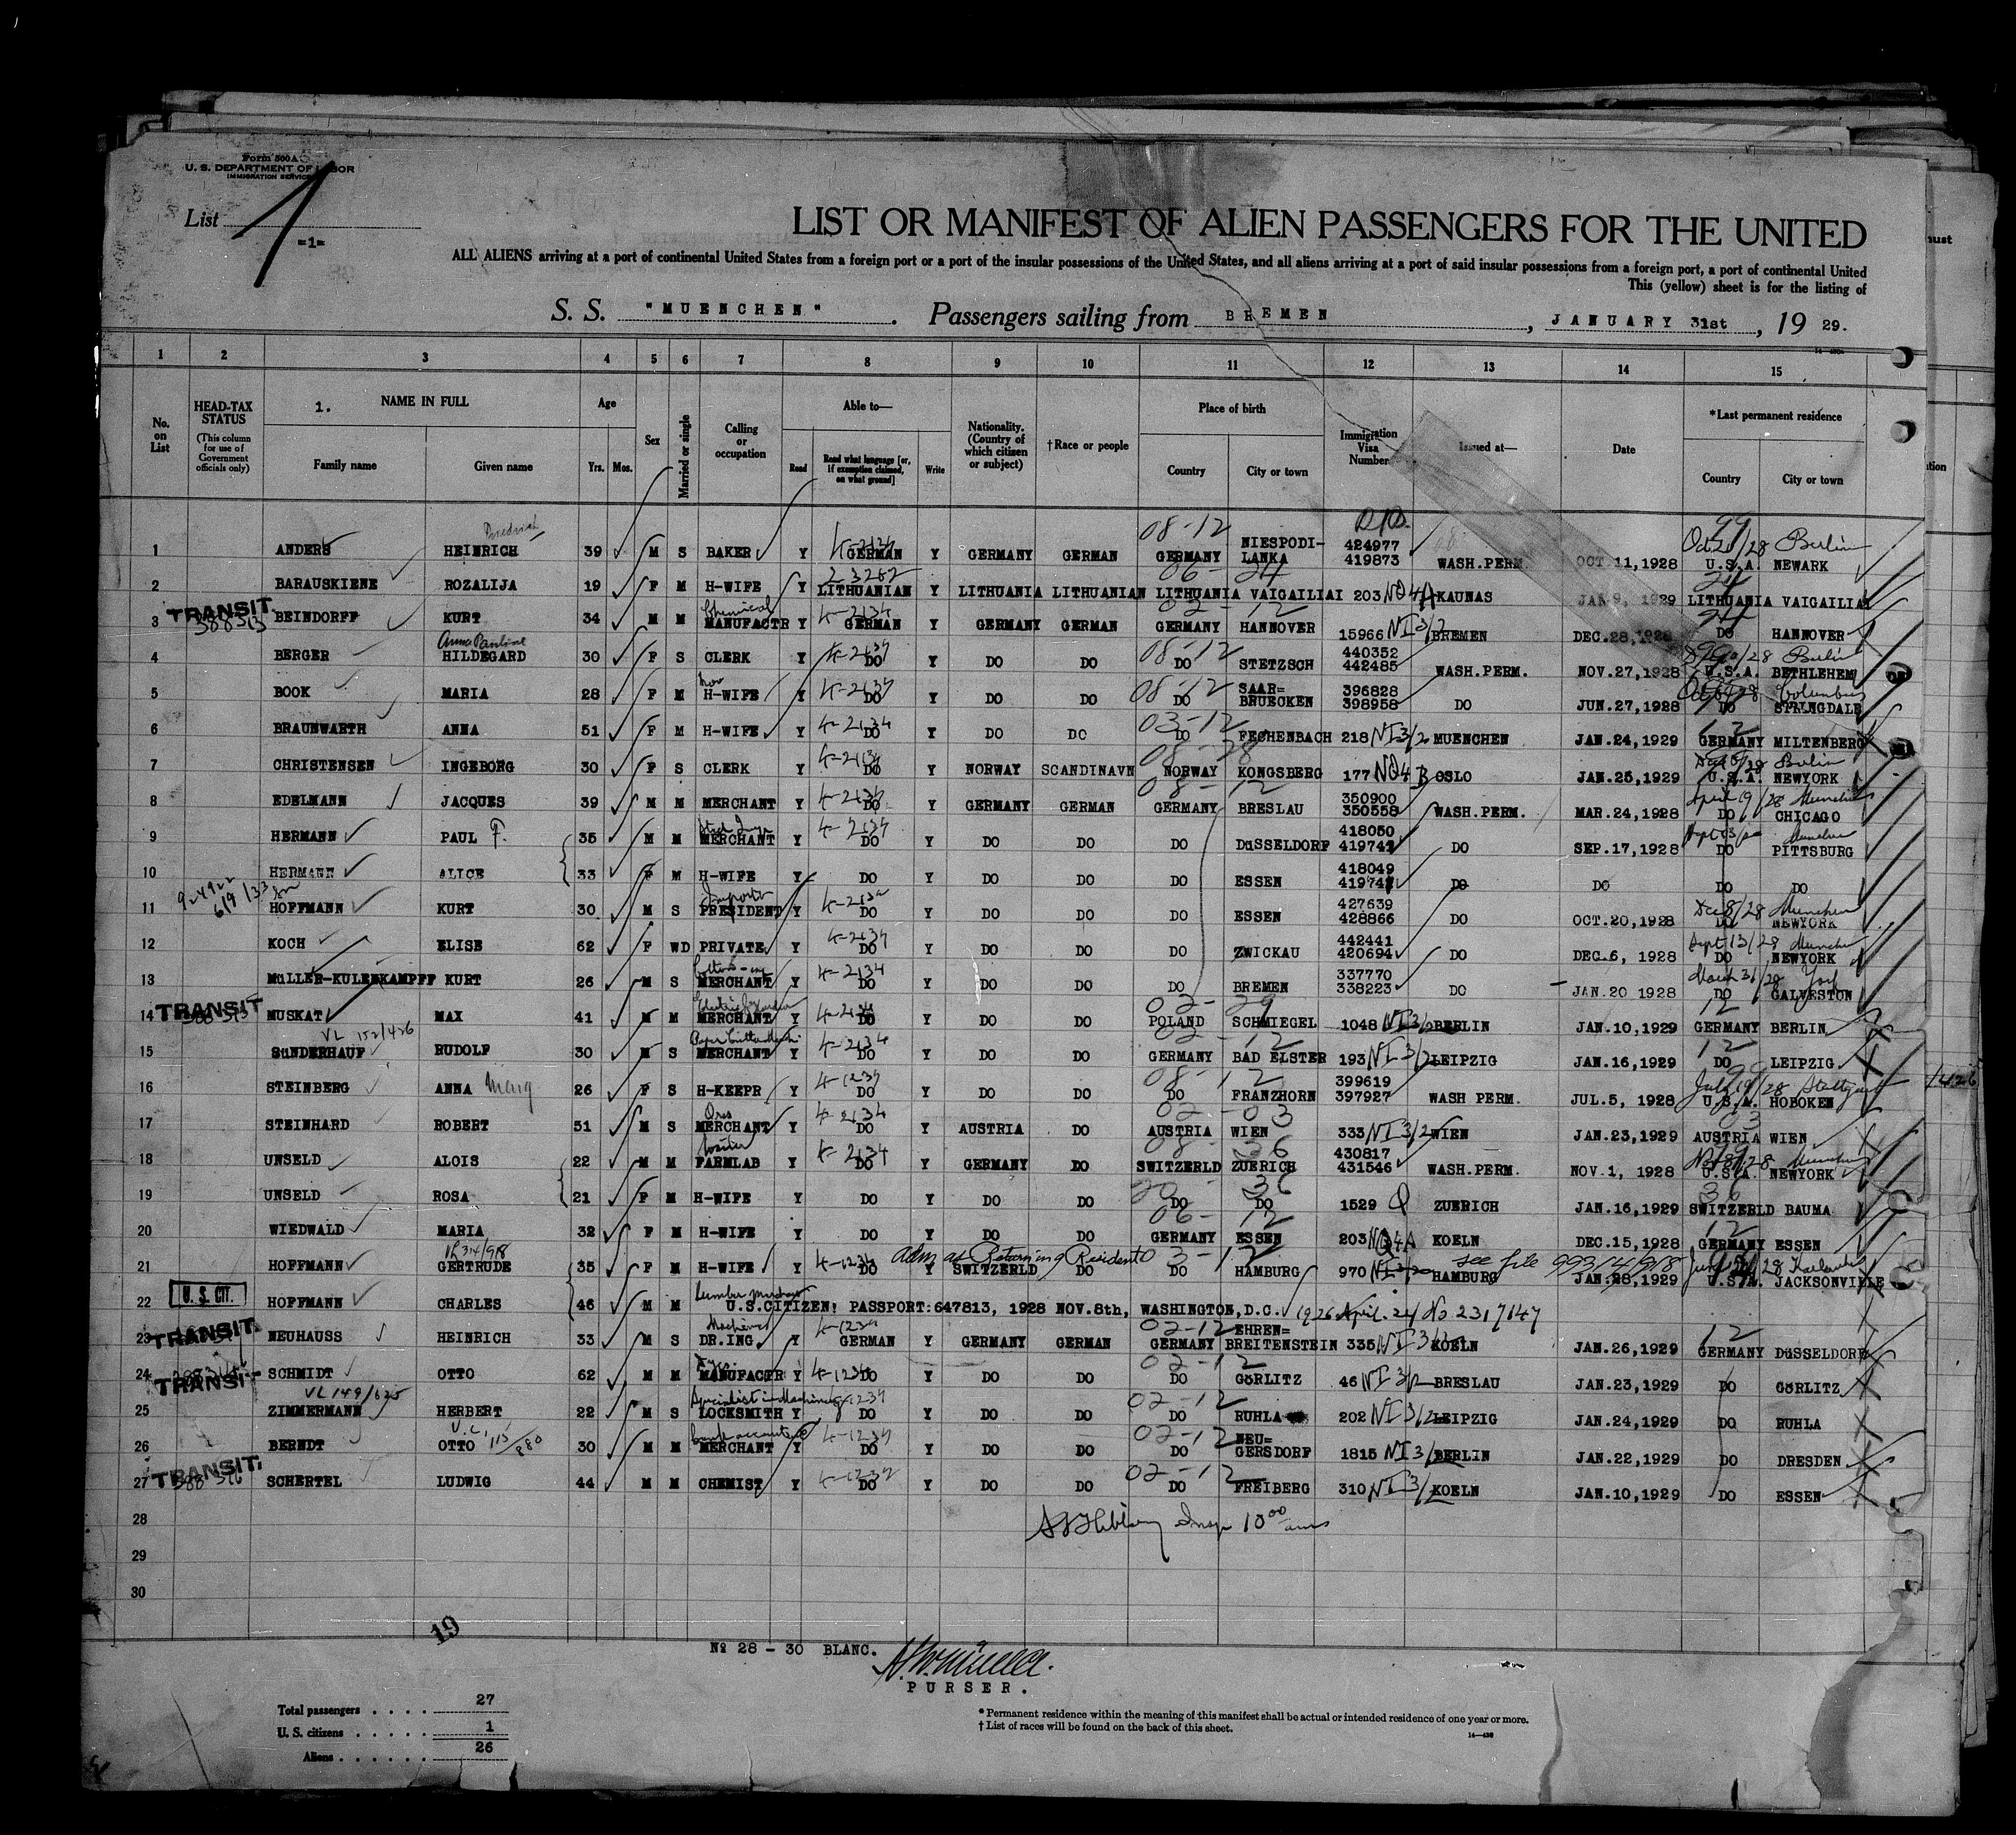 Form 500A
U. S. DEPARTMENT OF LABOR
IMMIGRATION SERVICE
List 1
=1=
LIST OR MANIFEST OF ALIEN PASSENGERS FOR THE UNITED
ALL ALIENS arriving at a port of continental United States from a foreign port or a port of the insular possessions of the United States, and all aliens arriving at a port of said insular possessions from a foreign port, a port of continental United
This (yellow) sheet is for the listing of
S. S. "MUENCHEN". Passengers sailing from BREMEN, JANUARY 31st, 19 29.
1 2 3 4 5 6 7 8 9 10 11 12 13 14 15
No. on List
HEAD-TAX STATUS (This column for use of Government officials only)
1. NAME IN FULL
Family name Given name
Age Yrs. Mos.
Sex
Married or single
Calling or occupation
Able to—
Read Read what language [or, if exemption claimed, on what ground] Write
Nationality. (Country of which citizen or subject)
†Race or people
Place of birth
Country City or town
Immigration Visa Number
Issued at—
Date
*Last permanent residence
Country City or town
1 ANDERS HEINRICH 39 M S BAKER Y GERMAN Y GERMANY GERMAN GERMANY NIESPODI-LANKA 424977 419873 WASH.PERM. OCT.11,1928 U.S.A. NEWARK
2 BARAUSKIENE ROZALIJA 19 F M H-WIFE Y LITHUANIAN Y LITHUANIA LITHUANIAN LITHUANIA VAIGAILIAI 203 NQ4A KAUNAS JAN.9, 1929 LITHUANIA VAIGAILIAI
TRANSIT
3 BEINDORFF KURT 34 M M Chemical MANUFACTR Y GERMAN Y GERMANY GERMAN GERMANY HANNOVER 15966 NI3/2 BREMEN DEC.28,1928 DO HANNOVER
4 BERGER Anna Pauline HILDEGARD 30 F S CLERK Y DO Y DO DO DO STETZSCH 440352 442485 WASH.PERM. NOV.27,1928 U.S.A. BETHLEHEM
5 BOOK MARIA 28 F M H-WIFE Y DO Y DO DO DO SAAR=BRUECKEN 396828 398958 DO JUN.27,1928 DO SPRINGDALE
6 BRAUNWARTH ANNA 51 F M H-WIFE Y DO Y DO DO DO FECHENBACH 218 NI3/2 MUENCHEN JAN.24,1929 GERMANY MILTENBERG
7 CHRISTENSEN INGEBORG 30 F S CLERK Y DO Y NORWAY SCANDINAVN NORWAY KONGSBERG 177 NQ4B OSLO JAN.25,1929 U.S.A. NEWYORK
8 EDELMANN JACQUES 39 M M MERCHANT Y DO Y GERMANY GERMAN GERMANY BRESLAU 350900 350558 WASH.PERM. MAR.24,1928 DO CHICAGO
9 HERMANN PAUL F. 35 M M MERCHANT Y DO Y DO DO DO DüSSELDORF 418050 419741 DO SEP.17,1928 DO PITTSBURG
10 HERMANN ALICE 33 F M H-WIFE Y DO Y DO DO DO ESSEN 418049 419742 DO DO DO DO
11 HOFFMANN KURT 30 M S PRESIDENT Y DO Y DO DO DO ESSEN 427639 428866 DO OCT.20,1928 DO NEWYORK
12 KOCH ELISE 62 F WD PRIVATE Y DO Y DO DO DO ZWICKAU 442441 420694 DO DEC.6, 1928 DO NEWYORK
13 MüLLER-KULENKAMPFF KURT 26 M S MERCHANT Y DO Y DO DO DO BREMEN 337770 338223 DO JAN.20 1928 DO GALVESTON
TRANSIT
14 MUSKAT MAX 41 M M MERCHANT Y DO Y DO DO POLAND SCHMIEGEL 1048 NI3/2 BERLIN JAN.10,1929 GERMANY BERLIN
VL 152/426
15 SüNDERHAUF RUDOLF 30 M S MERCHANT Y DO Y DO DO GERMANY BAD ELSTER 193 NI3/2 LEIPZIG JAN.16,1929 DO LEIPZIG
16 STEINBERG ANNA 26 F S H-KEEPR Y DO Y DO DO DO FRANZHORN 399619 397927 WASH PERM. JUL.5, 1928 U.S.A. HOBOKEN
17 STEINHARD ROBERT 51 M S MERCHANT Y DO Y AUSTRIA DO AUSTRIA WIEN 333 NI3/2 WIEN JAN.23,1929 AUSTRIA WIEN
18 UNSELD ALOIS 22 M M FARMLAB Y DO Y GERMANY DO SWITZERLD ZUERICH 430817 431546 WASH.PERM. NOV.1, 1928 U.S.A. NEWYORK
19 UNSELD ROSA 21 F M H-WIFE Y DO Y DO DO DO DO 1529 Q ZUERICH JAN.16,1929 SWITZERLD BAUMA
20 WIEDWALD MARIA 32 F M H-WIFE Y DO Y DO DO GERMANY ESSEN 203 NQ4A KOELN DEC.15,1928 GERMANY ESSEN
adm as Returning Resident see file 99314/918
21 HOFFMANN GERTRUDE 35 F M H-WIFE Y DO Y SWITZERLD DO DO HAMBURG 970 HAMBURG JAN.28,1929 U.S.A. JACKSONVILLE
U. S. CIT.
22 HOFFMANN CHARLES 46 M M U.S.CITIZEN: PASSPORT:647813, 1928 NOV.8th, WASHINGTON,D.C. 1926 April 24 No 2317147
TRANSIT
23 NEUHAUSS HEINRICH 33 M S DR.ING. Y GERMAN Y GERMANY GERMAN GERMANY EHREN=BREITENSTEIN 335 KOELN JAN.26,1929 GERMANY DüSSELDORF
TRANSIT
24 SCHMIDT OTTO 62 M M MANUFACTR Y DO Y DO DO DO GöRLITZ 46 NI3/2 BRESLAU JAN.23,1929 DO GöRLITZ
VL 149/625
25 ZIMMERMANN HERBERT 22 M S Specialist in Machinery LOCKSMITH Y DO Y DO DO DO RUHLA 202 NI3/2 LEIPZIG JAN.24,1929 DO RUHLA
26 BERNDT OTTO 30 M M MERCHANT Y DO Y DO DO DO NEU=GERSDORF 1815 NI3/2 BERLIN JAN.22,1929 DO DRESDEN
TRANSIT
27 SCHERTEL LUDWIG 44 M M CHEMIST Y DO Y DO DO DO FREIBERG 310 NI3/2 KOELN JAN.10,1929 DO ESSEN
28
29
30
19
No 28 - 30 BLANC.
PURSER.
Total passengers . . . . 27
U. S. citizens . . . . . 1
Aliens . . . . . . 26
* Permanent residence within the meaning of this manifest shall be actual or intended residence of one year or more.
† List of races will be found on the back of this sheet.